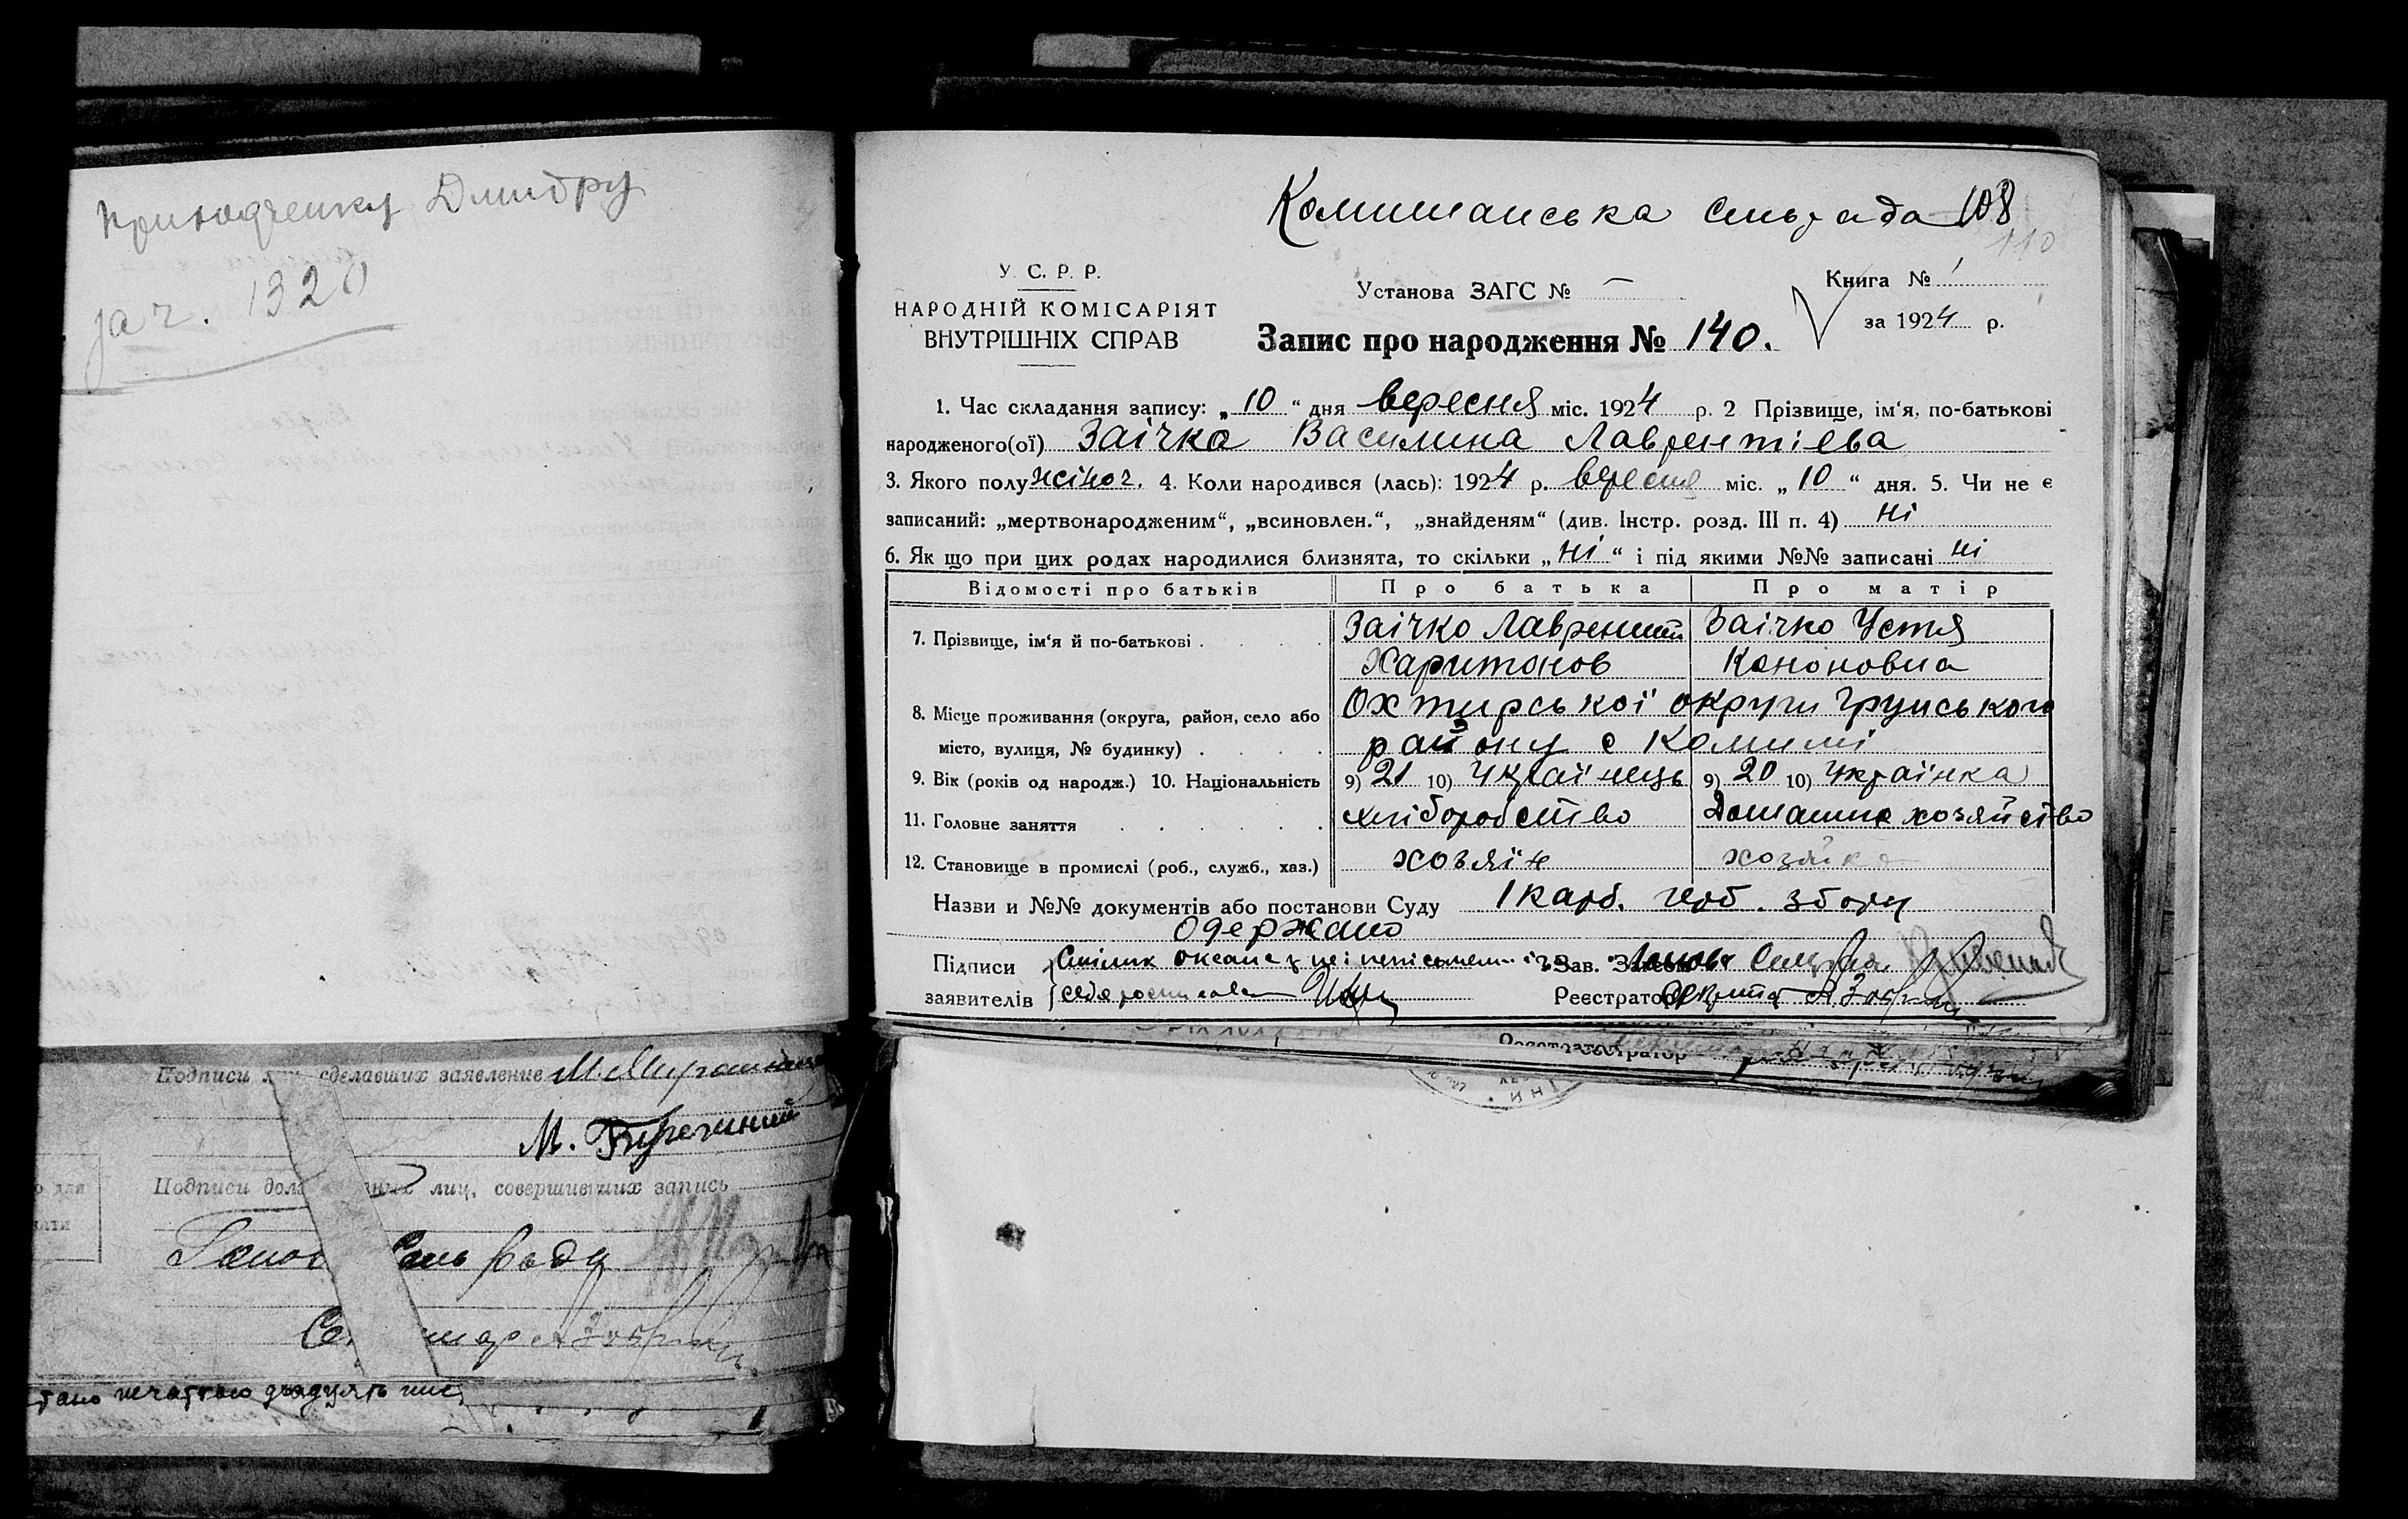 Приходченку Дмидру
за ч. 1320
Подписи сделавших заявление М. Мирошни
М. Гиречний
Подписи лиц, совершивших запись
Голов Сіль Ради
печаттю двадцять
Комишанська сільрада 108
110
У. С. Р. Р.
НАРОДНІЙ КОМІСАРІЯТ
ВНУТРІШНІХ СПРАВ
Установа ЗАГС № —
Книга № 1
за 1924 р.
Запис про народження № 140.
1. Час складання запису: „10“ дня вересня міс. 1924 р. 2 Прізвище, ім‘я, по-батькові
народженого(ої) Заічка Василина Лаврентіева
3. Якого полу жіноч. 4. Коли народився (лась): 1924 р. вересня міс. „10“ дня. 5. Чи не є
записаний: „мертвонародженим“, „всиновлен.“, „знайденям“ (див. Інстр. розд. III п. 4) ні
6. Як що при цих родах народилися близнята, то скільки „ні“ і під якими №№ записані ні
Відомості про батьків Про батька Про матір
7. Прізвище, ім‘я й по-батькові . Заічко Лаврентий Заічко Устя
Харитонов Кононовна
8. Місце проживання (округа, район, село або Охтирської округи Грунського
місто, вулиця, № будинку) . району с Комиші
9. Вік (років од народж.) 10. Національність 9) 21 10) Українець 9) 20 10) Українка
11. Головне заняття хліборобство Домашнє хозяйство
12. Становище в промислі (роб., служб., хаз.) хозяїн хозяйка
Назви и №№ документів або постанови Суду 1 карб. герб. збору
одержано
Підписи Оксана Зав. Загсом Голова Сільради
заявителів Реєстратор
Реєстратор